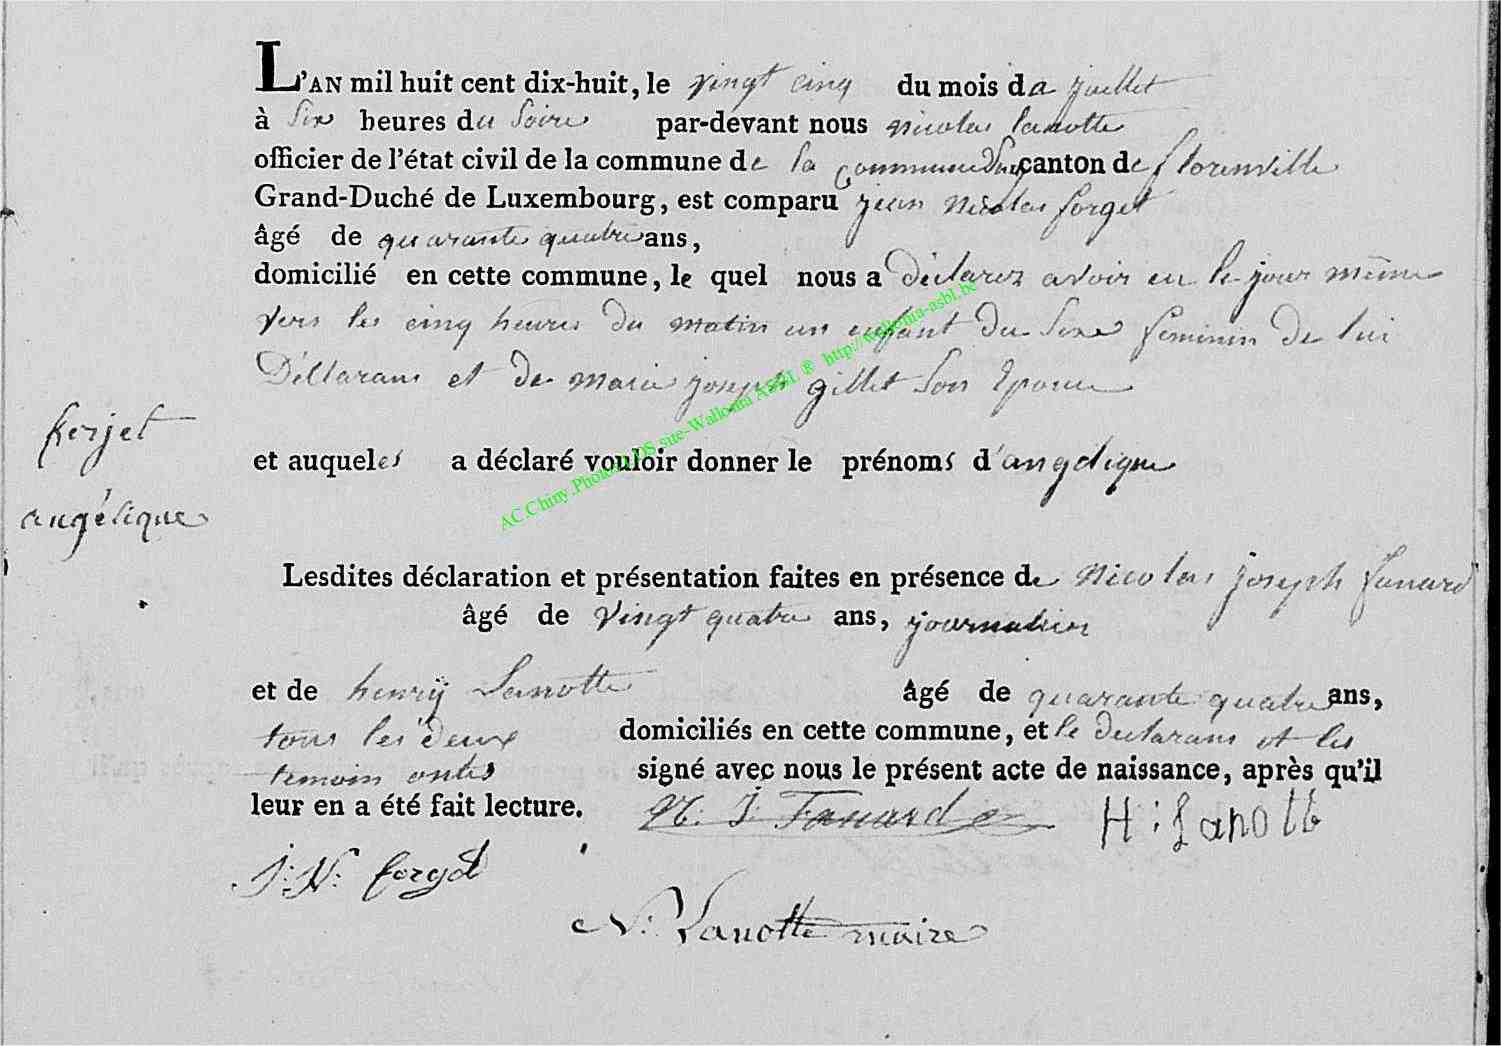 L'AN mil huit cent dix-huit, le vingt cinq du mois da juillet
à Six heures du Soire par-devant nous nicolas lanotte
officier de l'état civil de la commune de la Commune canton de florenville
Grand-Duché de Luxembourg, est comparu jean nicolas forget
âgé de quarante quatre ans,
domicilié en cette commune, le quel nous a déclarez avoir eu le jour même
vers les cinq heures du matin un enfant du Sexe feminin de lui
Déllarans et de marie joseph gillet Son Epouse
forjet
et auqueles a déclaré vouloir donner le prénoms d'angélique
angélique
Lesdites déclaration et présentation faites en présence de Nicolas joseph fanard
âgé de vingt quatre ans, journalier
et de henrÿ Lanotte âgé de quarante quatre ans,
tous les deux domiciliés en cette commune, et le declarans et les
temoin ontes signé avec nous le présent acte de naissance, après qu'il
leur en a été fait lecture. N. J. Fanard H: Lanotte
J: N: forget
N: Lanotte maire
AC.Chiny.Photos LDS.sue-Wallonia ASBL ® http://wallonia-asbl.be